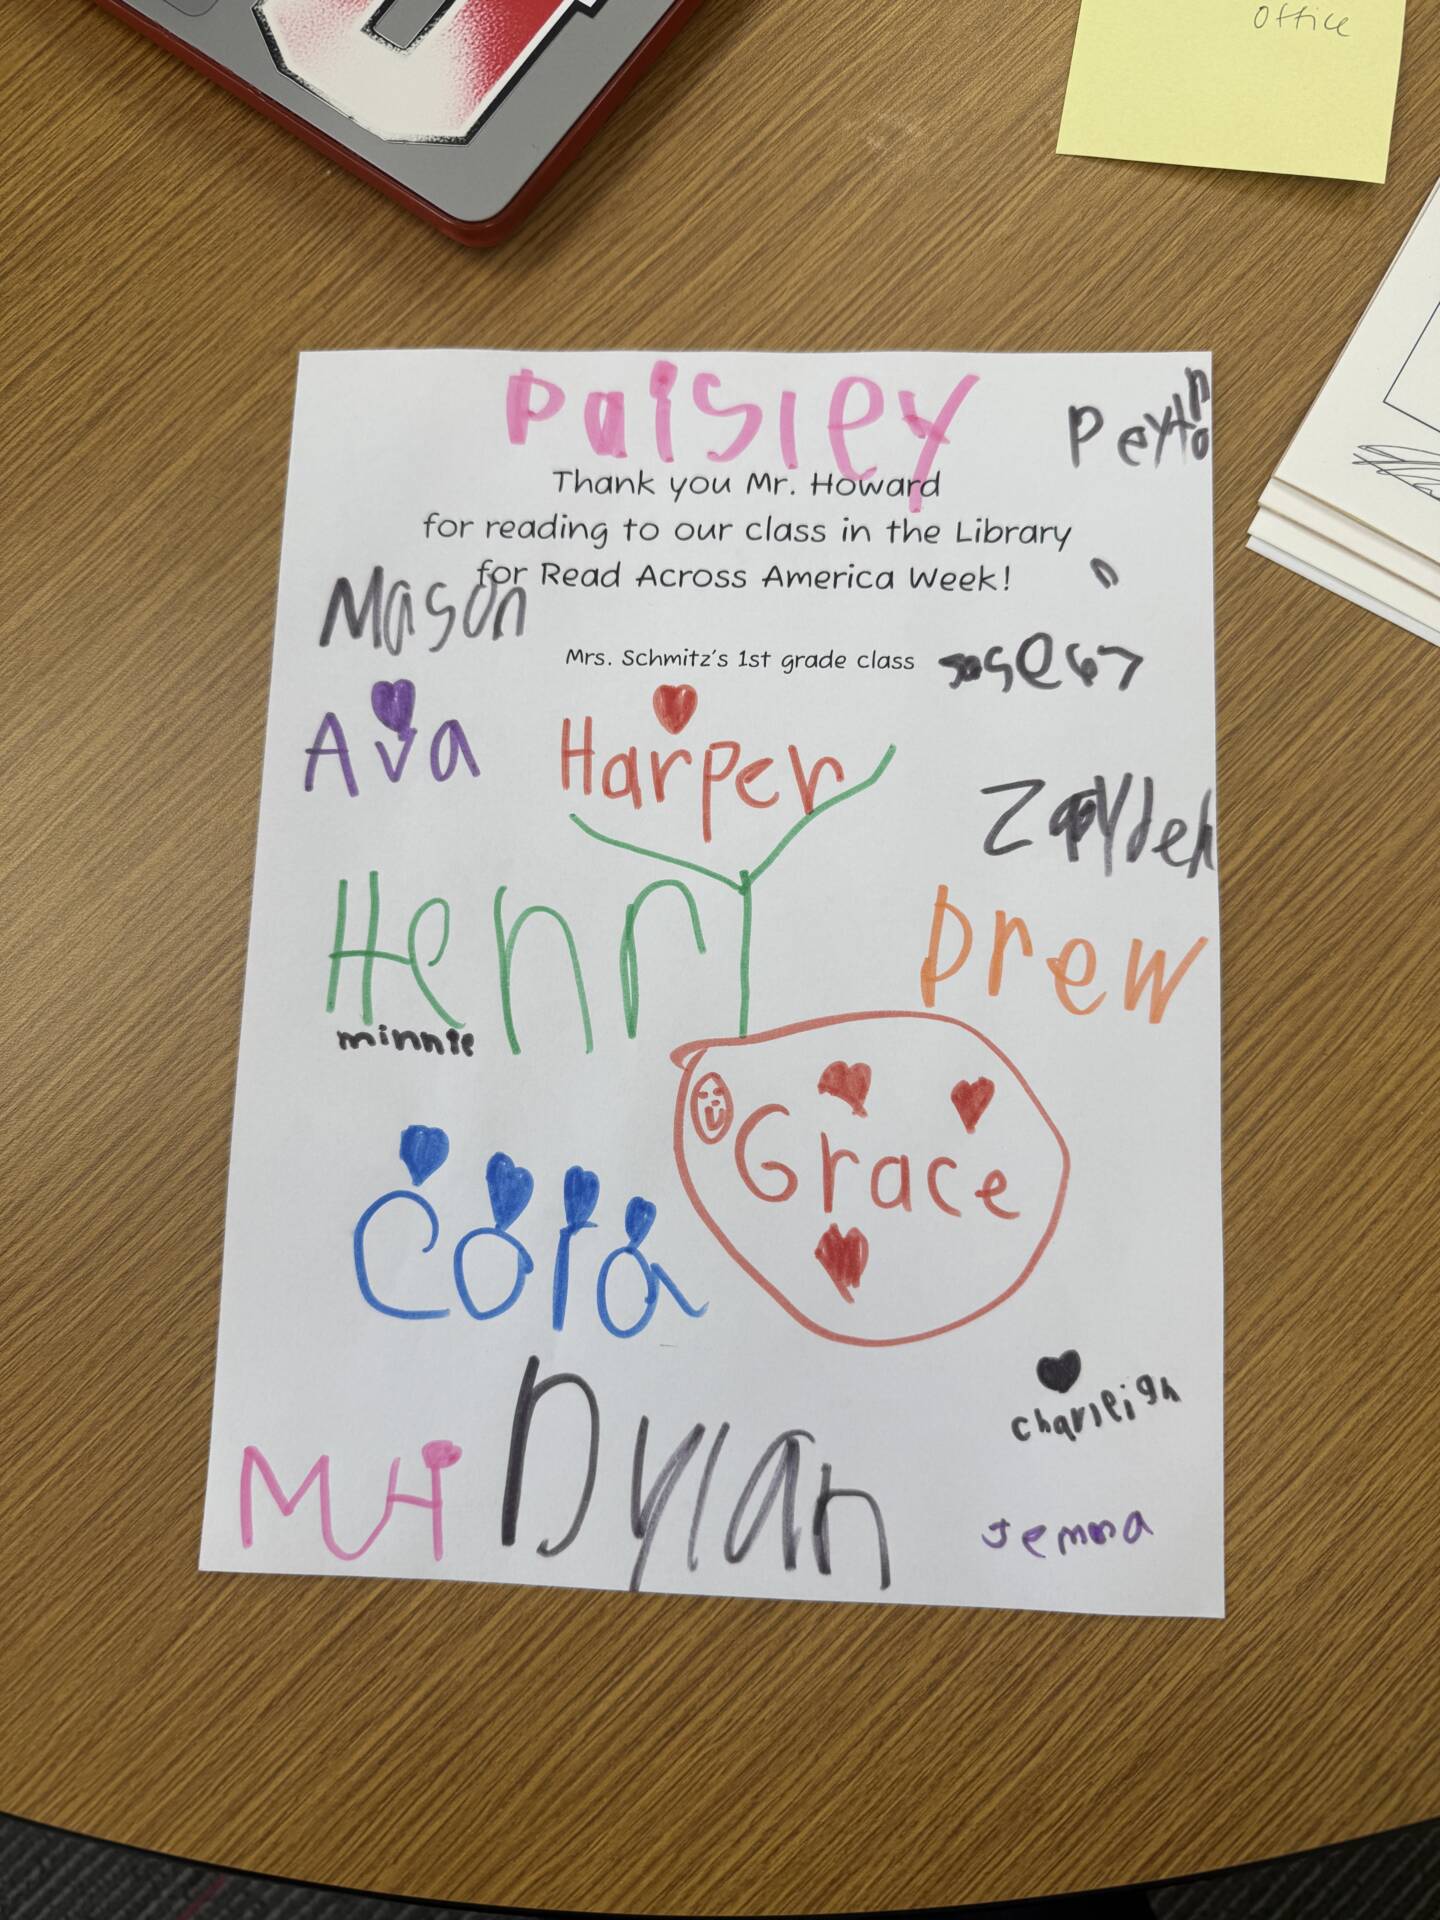 Office
Paisley
Peyton
Thank you Mr. Howard
for reading to our class in the Library
for Read Across America Week!
Mason
Mrs. Schmitz's 1st grade class
Ava
Harper
Zayden
Henry
Drew
minnie
Grace
Cora
charleigh
Dylan
Jemma